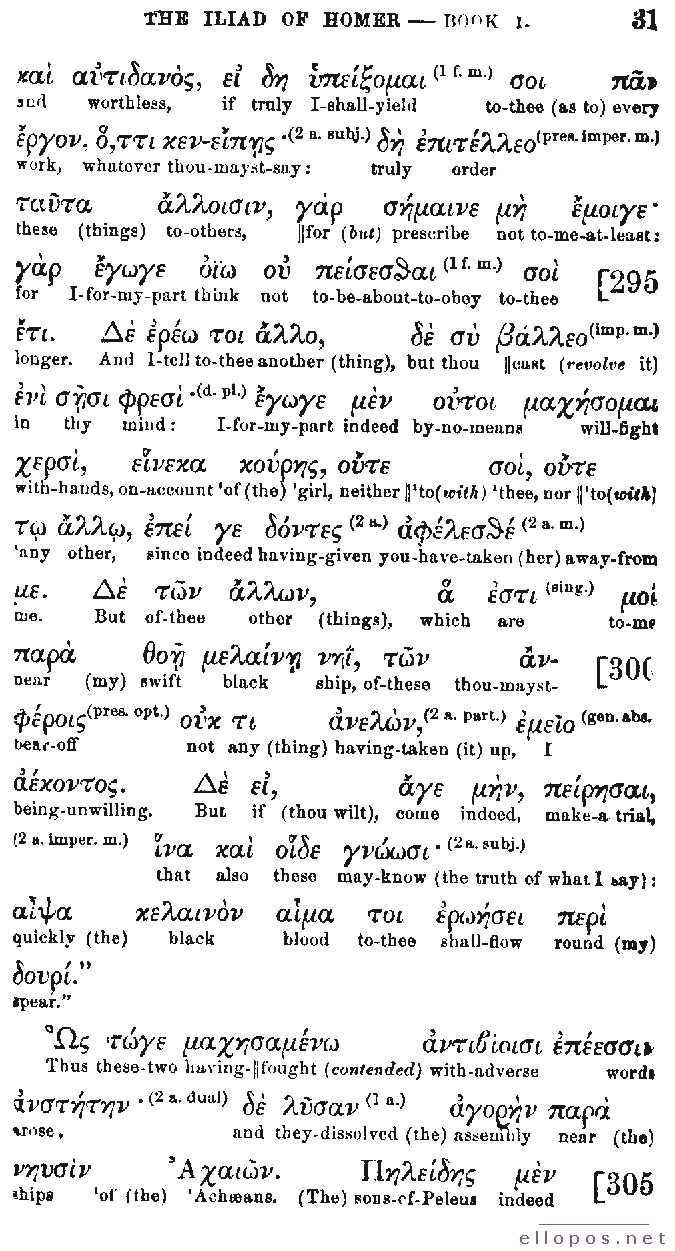 THE ILIAD OF HOMER — BOOK I. 31
καὶ αὐτιδανὸς, εἰ δη ὑπείξομαι (1 f. m.) σοι πᾶν
and worthless, if truly I-shall-yield to-thee (as to) every
ἔργον, ὅ,ττι κεν-εἴπῃς ·(2 a. subj.) δὴ ἐπιτέλλεο (pres. imper. m.)
work, whatever thou-mayst-say: truly order
ταῦτα ἄλλοισιν, γάρ σήμαινε μὴ ἔμοιγε·
these (things) to-others, ‖for (but) prescribe not to-me-at-least:
γὰρ ἔγωγε ὀΐω οὐ πείσεσθαι (1 f. m.) σοὶ [295
for I-for-my-part think not to-be-about-to-obey to-thee
ἔτι. Δὲ ἐρέω τοι ἄλλο, δὲ σὺ βάλλεο (imp. m.)
longer. And I-tell to-thee another (thing), but thou ‖cast (revolve it)
ἐνὶ σῇσι φρεσὶ ·(d. pl.) ἔγωγε μὲν οὔτοι μαχήσομαι
in thy mind: I-for-my-part indeed by-no-means will-fight
χερσὶ, εἵνεκα κούρης, οὔτε σοὶ, οὔτε
with-hands, on-account 'of (the) 'girl, neither ‖'to(with) 'thee, nor ‖'to(with)
τῳ ἄλλῳ, ἐπεί γε δόντες (2 a.) ἀφέλεσθέ (2 a. m.)
'any other, since indeed having-given you-have-taken (her) away-from
με. Δὲ τῶν ἄλλων, ἅ ἐστι (sing.) μοὶ
me. But of-thee other (things), which are to-me
παρὰ θοῇ μελαίνῃ νηῒ, τῶν ἀν- [300
near (my) swift black ship, of-these thou-mayst-
φέροις (pres. opt.) οὐκ τι ἀνελὼν, (2 a. part.) ἐμεῖο (gen. abs.
bear-off not any (thing) having-taken (it) up, I
ἀέκοντος. Δὲ εἰ, ἄγε μὴν, πείρησαι,
being-unwilling. But if (thou wilt), come indeed, make-a trial,
(2 a. imper. m.) ἵνα καὶ οἵδε γνώωσι · (2 a. subj.)
that also these may-know (the truth of what I say):
αἶψα κελαινὸν αἷμα τοι ἐρωήσει περὶ
quickly (the) black blood to-thee shall-flow round (my)
δουρί."
spear."
Ὣς τώγε μαχησαμένω ἀντιβίοισι ἐπέεσσιν
Thus these-two having-‖fought (contended) with-adverse words
ἀνστήτην · (2 a. dual) δὲ λῦσαν (1 a.) ἀγορὴν παρὰ
arose, and they-dissolved (the) assembly near (the)
νηυσὶν Ἀχαιῶν. Πηλείδης μὲν [305
ships 'of (the) 'Achæans. (The) sons-of-Peleus indeed
ellopos.net